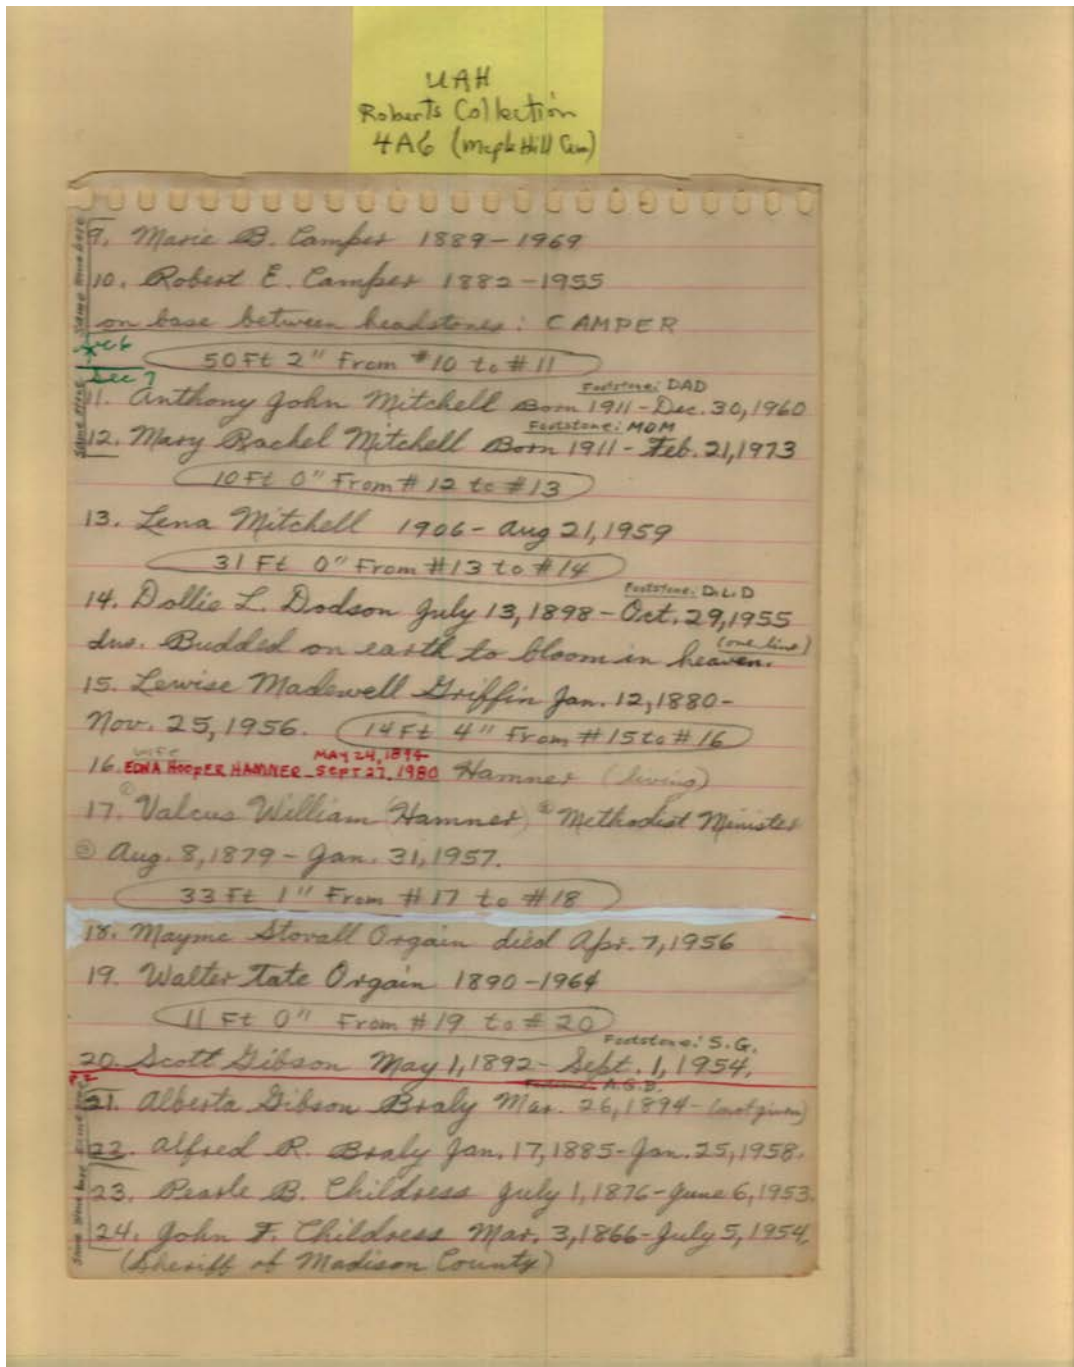 UAH
Roberts Collection
4A6 (Maple Hill Cem)
9. Marie B. Camper 1889-1969
10. Robert E. Camper 1882-1955
on base between headstones: CAMPER
50 Ft 2" From #10 to #11
Sec 6
Sec 7
Footstone: DAD
11. Anthony John Mitchell Born 1911-Dec. 30, 1960
Footstone: MOM
12. Mary Rachel Mitchell Born 1911-Feb. 21, 1973
10 Ft 0" From #12 to #13
13. Lena Mitchell 1906-Aug 21, 1959
31 Ft 0" From #13 to #14
Footstone: D.L.D
14. Dollie L. Dodson July 13, 1898-Oct. 29, 1955
(one line)
ins. Budded on earth to bloom in heaven.
15. Lewise Madewell Griffin Jan. 12, 1880-
Nov. 25, 1956. 14 Ft 4" From #15 to #16
wife MAY 24, 1894
16. EDNA HOOPER HAMNER - SEPT 27, 1980 Hamner (living)
17. ① Valcus William (Hamner) ② Methodist Minister
③ Aug. 8, 1879-Jan. 31, 1957.
33 Ft 1" From #17 to #18
18. Mayme Stovall Orgain died Apr. 7, 1956
19. Walter Tate Orgain 1890-1964
11 Ft 0" From #19 to #20
Footstone: S.G.
20. Scott Gibson May 1, 1892-Sept. 1, 1954.
P.2 Footstone: A.G.B.
21. Alberta Gibson Braly Mar. 26, 1894-(not given)
22. Alfred R. Braly Jan. 17, 1885-Jan. 25, 1958.
23. Pearle B. Childress July 1, 1876-June 6, 1953.
24. John F. Childress Mar. 3, 1866-July 5, 1954.
(Sheriff of Madison County)
Same stone base
Same base
Same stone base